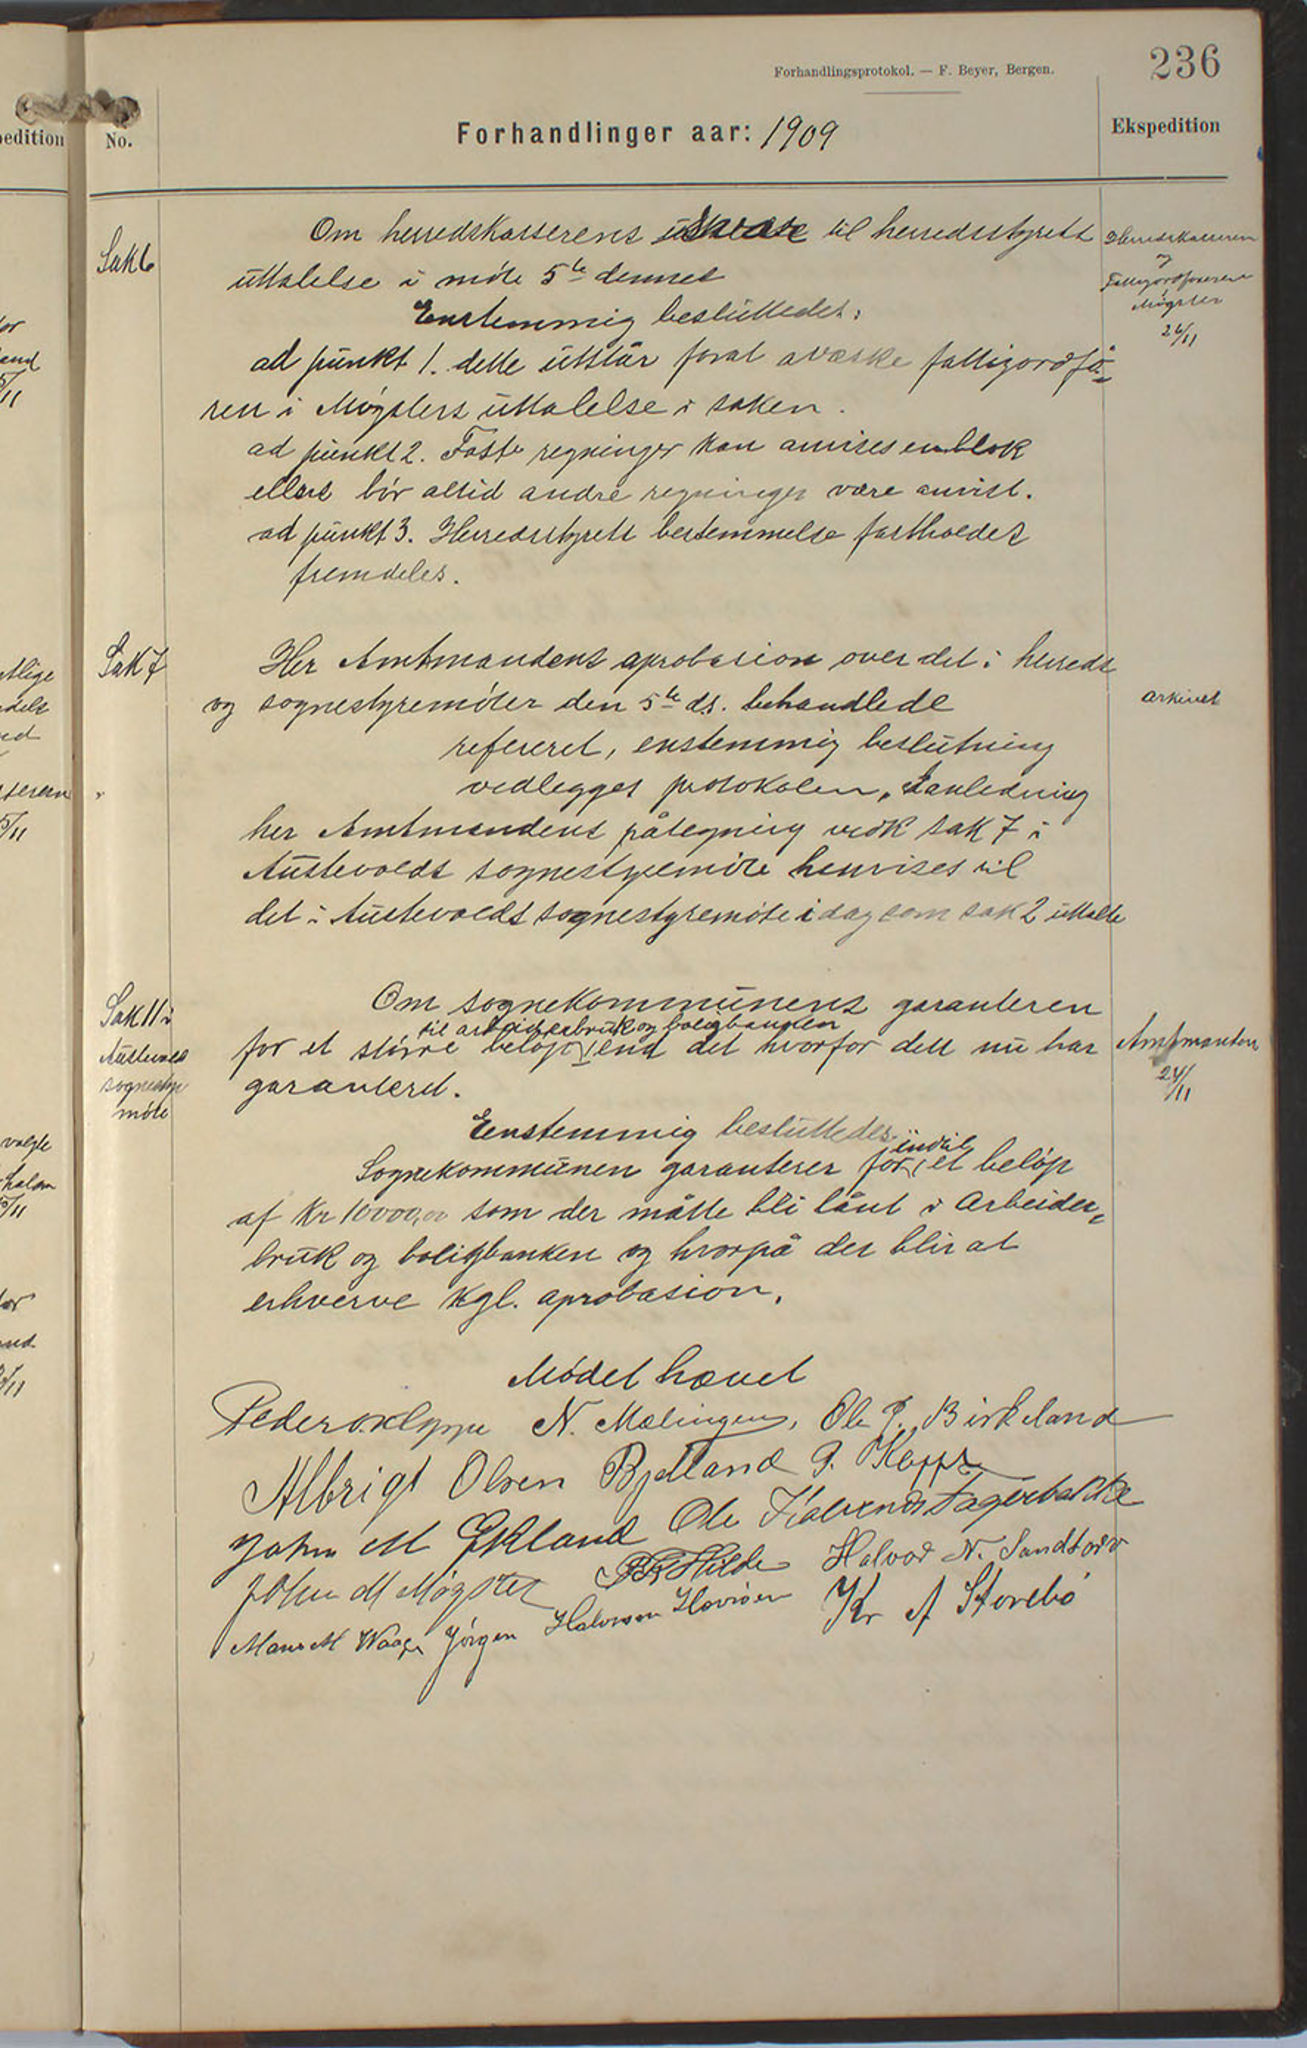 236
Forhandlingsprotokol. — F. Beyer, Bergen.
No.
Forhandlinger aar: 1909
Ekspedition
Sak 6
Om herredskasserens til herredsstyrets
uttalelse i møte 5te dennes
Enstemmig besluttedes:
ad punkt 1. dette utstår forat avæske fattigordfø=
ren i Møgsters uttalelse i saken.
ad punkt 2. Faste regninger kan anvises enblok
ellers bør altid andre regninger være anvist.
ad punkt 3. Herredsstyrets bestemmelse fastholdes
fremdeles.
Herredskasseren
og
Fattigordføreren
Møgster
26/11
Sak 7
Hr Amtmandens aprobasion over det i herreds
og sognestyremøter den 5te ds. behandlede
refereret, enstemmig beslutning
vedlegges protokolen, I anledning
hr Amtmandens påtegning vedk sak 7 i
Austevolds sognestyremøte henvises til
det i Austevolds sognestyremøte idag som sak 2 uttalte
arkivet
Sak 11 i
Austevolds
sognestyre
møte
Om sognekommunens garanteren
til arbeiderbruk og boligbanken
for et større beløp end det hvorfor dett nu har
garanteret.
Amtmanden
24/11
Enstemmig besluttedes:
indtil
Sognekommunen garanterer for et beløp
af Kr 10000,00 som der måtte bli lånt i Arbeider=
bruk og boligbanken og hvorpå der blir at
erhverve Kgl. aprobasion.
Mødet hævet
Peder O. Kleppe N. Malingen, Ole P. Birkeland
Albrigt Olsen Bjelland P. Kopp
John M Ekland Ole Halvends Fagerbakke
John M Møgster Hilde Halvor N. Sandtorv
Mons M Waage Jørgen Halvorsen Horsøen Kr A Storebø